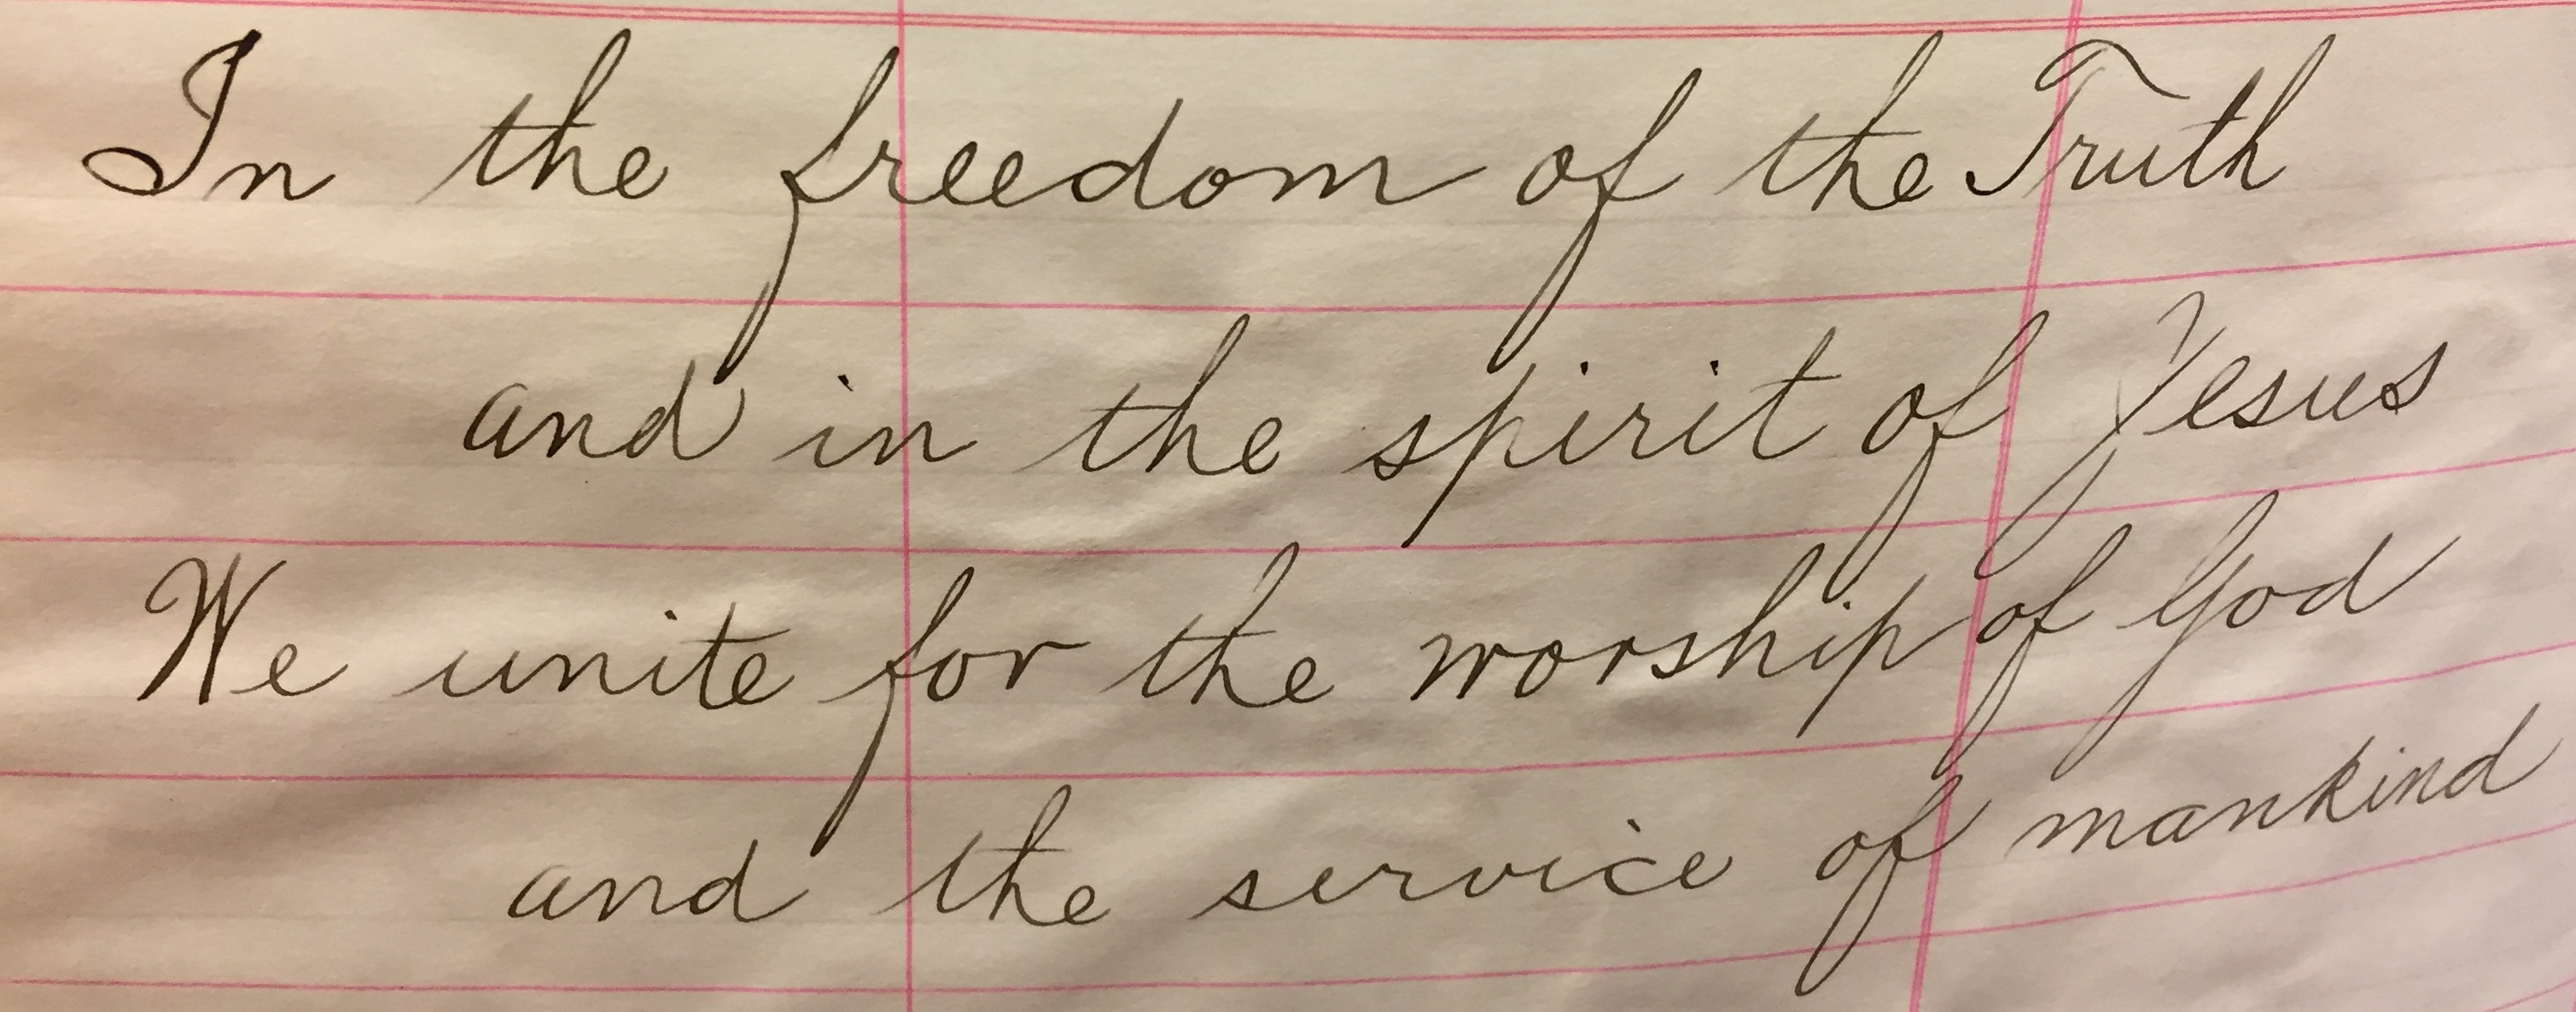 In the freedom of the Truth
and in the spirit of Jesus
We unite for the worship of God
and the service of mankind